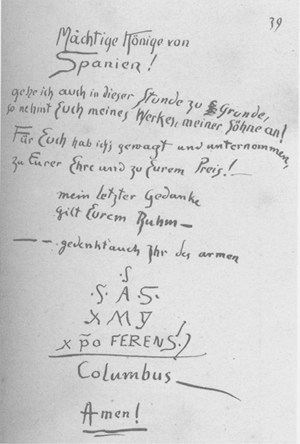 39
Mächtige Könige von
Spanien!
gehe ich auch in dieser Stunde zu Grunde,
so nehmt Euch meines Werkes, meiner Söhne an!
Für Euch hab ich's gewagt und unternommen,
zu Eurer Ehre und zu Eurem Preis! —
mein letzter Gedanke
gilt Eurem Ruhm —
— — . gedenkt auch Ihr des armen
.S
.S. A .S.
X M Y
x p̃o FERENS!)
Columbus —
Amen!